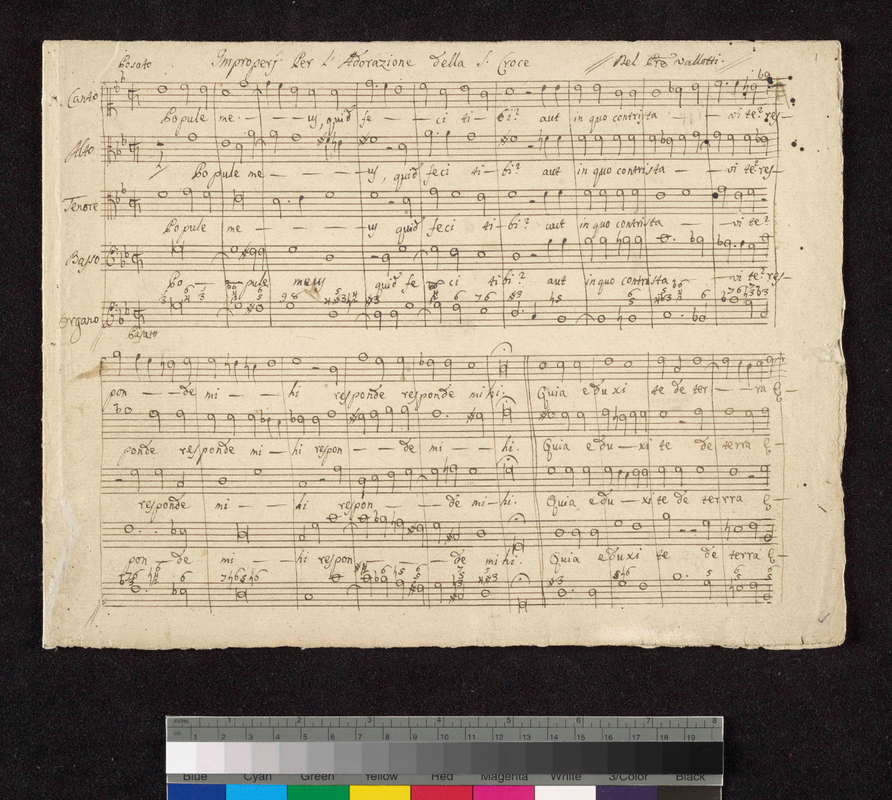 Posato Improperj Per l' Adorazione della S. Croce Del Pre Vallotti.
Canto
Popule me - - us, quid fe - - ci ti - bi? aut in quo contrista - - vi te? res-
Alto
Popule me - - - - us, quid feci ti - bi? aut in quo contrista - - vi te? res-
Tenore
Popule me - - - - us quid feci ti - bi? aut in quo contrista - - vi te?
Basso
Po - pule meus quid fe - ci ti bi? aut in quo contrista - - vi te? res-
Organo
Posato
pon - - de mi - - hi responde responde mihi. Quia eduxi te de ter - - ra E-
ponde responde mi - hi respon - - de mi - - hi. Quia edu - xi te de terra E-
responde mi - - hi respon - - - de mi - hi. Quia edu - xi te de terrra E-
pon - de mi - - hi respon - - - de mihi. Quia eduxi te de terra E-
inches 1 2 3 4 5 6 7 8
cm 1 2 3 4 5 6 7 8 9 10 11 12 13 14 15 16 17 18 19
Blue Cyan Green Yellow Red Magenta White 3/Color Black